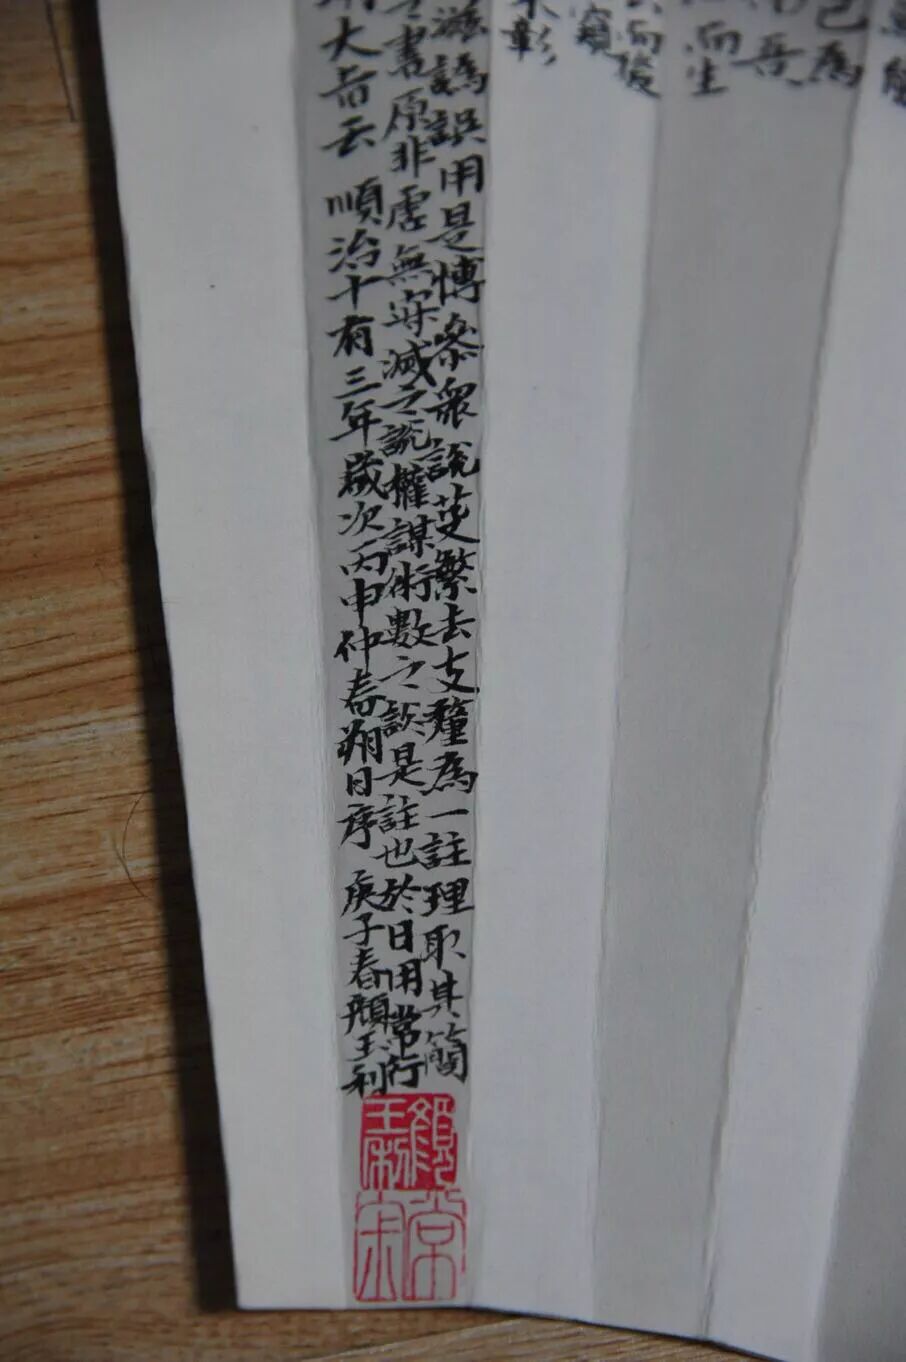 己為
而生
而後
竅
彰
滋譌誤用是博參衆說芟繁去支釐為一註理取其簡
書原非虛無寂滅之說權謀術數之談是註也於日用常行
大旨云 順治十有三年歲次丙申仲春朔日序 庚子春顏玉利
顏玉利
常